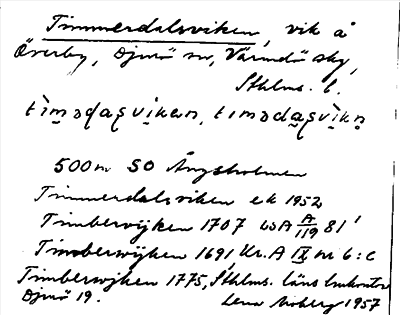 Timmerdalsviken, vik å
Överby, Djurö sn, Värmdö skg,
Sthlms. l.
tìmədaʂvikən, tìmədaʂvìkn̥
500 m SO Ängsholmen
Timmerdalsviken ek 1952
Timbervijken 1707 LSA A 119 81
Timberwijken 1691, Kr.A IX nr 6:c
Timberwijken 1775, Sthlms. läns lmkontor
Djurö 19. Lena Moberg 1957